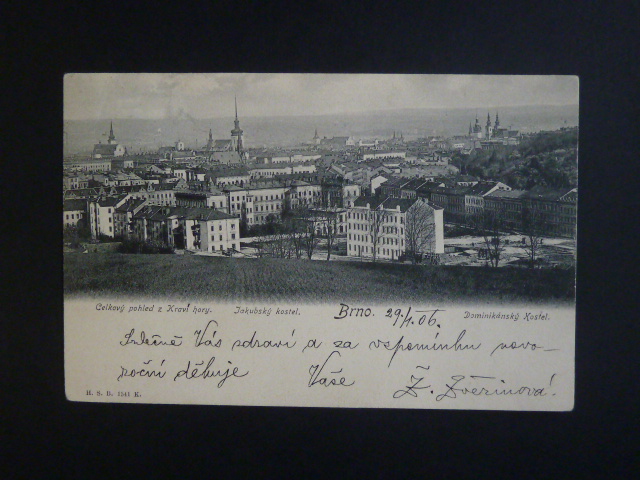 Celkový pohled z Kraví hory. Jakubský kostel. Brno. 29/1. 06. Dominikánský Kostel.
Srdečně Vás zdraví a za vzpomínku novo-
roční děkuje Vaše Ž. Zvěřinová.
H. S. B. 1141 K.